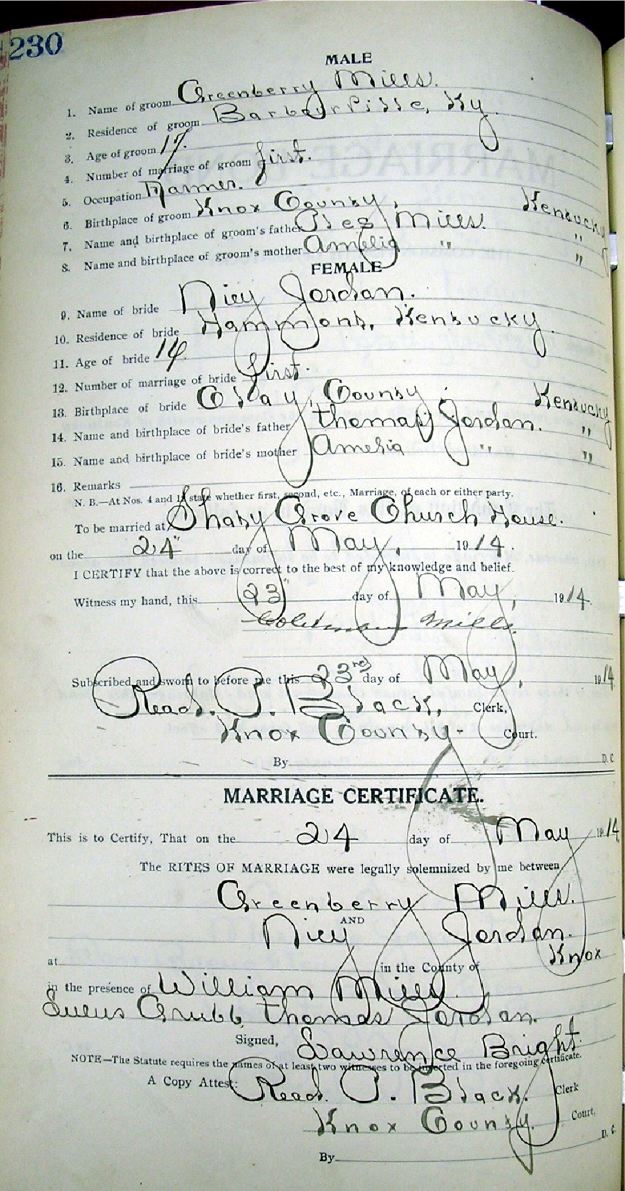 230
MALE
1. Name of groom Greenberry Mills.
2. Residence of groom Barbourville, Ky
3. Age of groom 17
4. Number of marriage of groom first.
5. Occupation Farmer.
6. Birthplace of groom Knox County, Kentucky
7. Name and birthplace of groom's father Mills. "
8. Name and birthplace of groom's mother Amelia " "
FEMALE
9. Name of bride Nicy Jordan.
10. Residence of bride Hammons, Kentucky.
11. Age of bride
12. Number of marriage of bride first.
13. Birthplace of bride Clay, County, Kentucky
14. Name and birthplace of bride's father Thomas Jordan. "
15. Name and birthplace of bride's mother Amelia " "
16. Remarks
N. B.—At Nos. 4 and 12 state whether first, second, etc., Marriage, of each or either party.
To be married at Shady Grove Church House.
on the 24" day of May, 1914.
I CERTIFY that the above is correct to the best of my knowledge and belief.
Witness my hand, this 23" day of May, 1914.
Coleman Mills.
Subscribed and sworn to before me this 23rd day of May, 1914
Read. P. Black, Clerk,
Knox County- Court.
By D. C.
MARRIAGE CERTIFICATE.
This is to Certify, That on the 24 day of May 1914
The RITES OF MARRIAGE were legally solemnized by me between
Greenberry Mills.
AND
Nicy Jordan.
at in the County of Knox
in the presence of William Mills.
Grubb Thomas Jordan.
Signed, Lawrence Bright.
NOTE—The Statute requires the names of at least two witnesses to be inserted in the foregoing certificate.
A Copy Attest: Read. P. Black. Clerk
Knox County. Court,
By D. C.